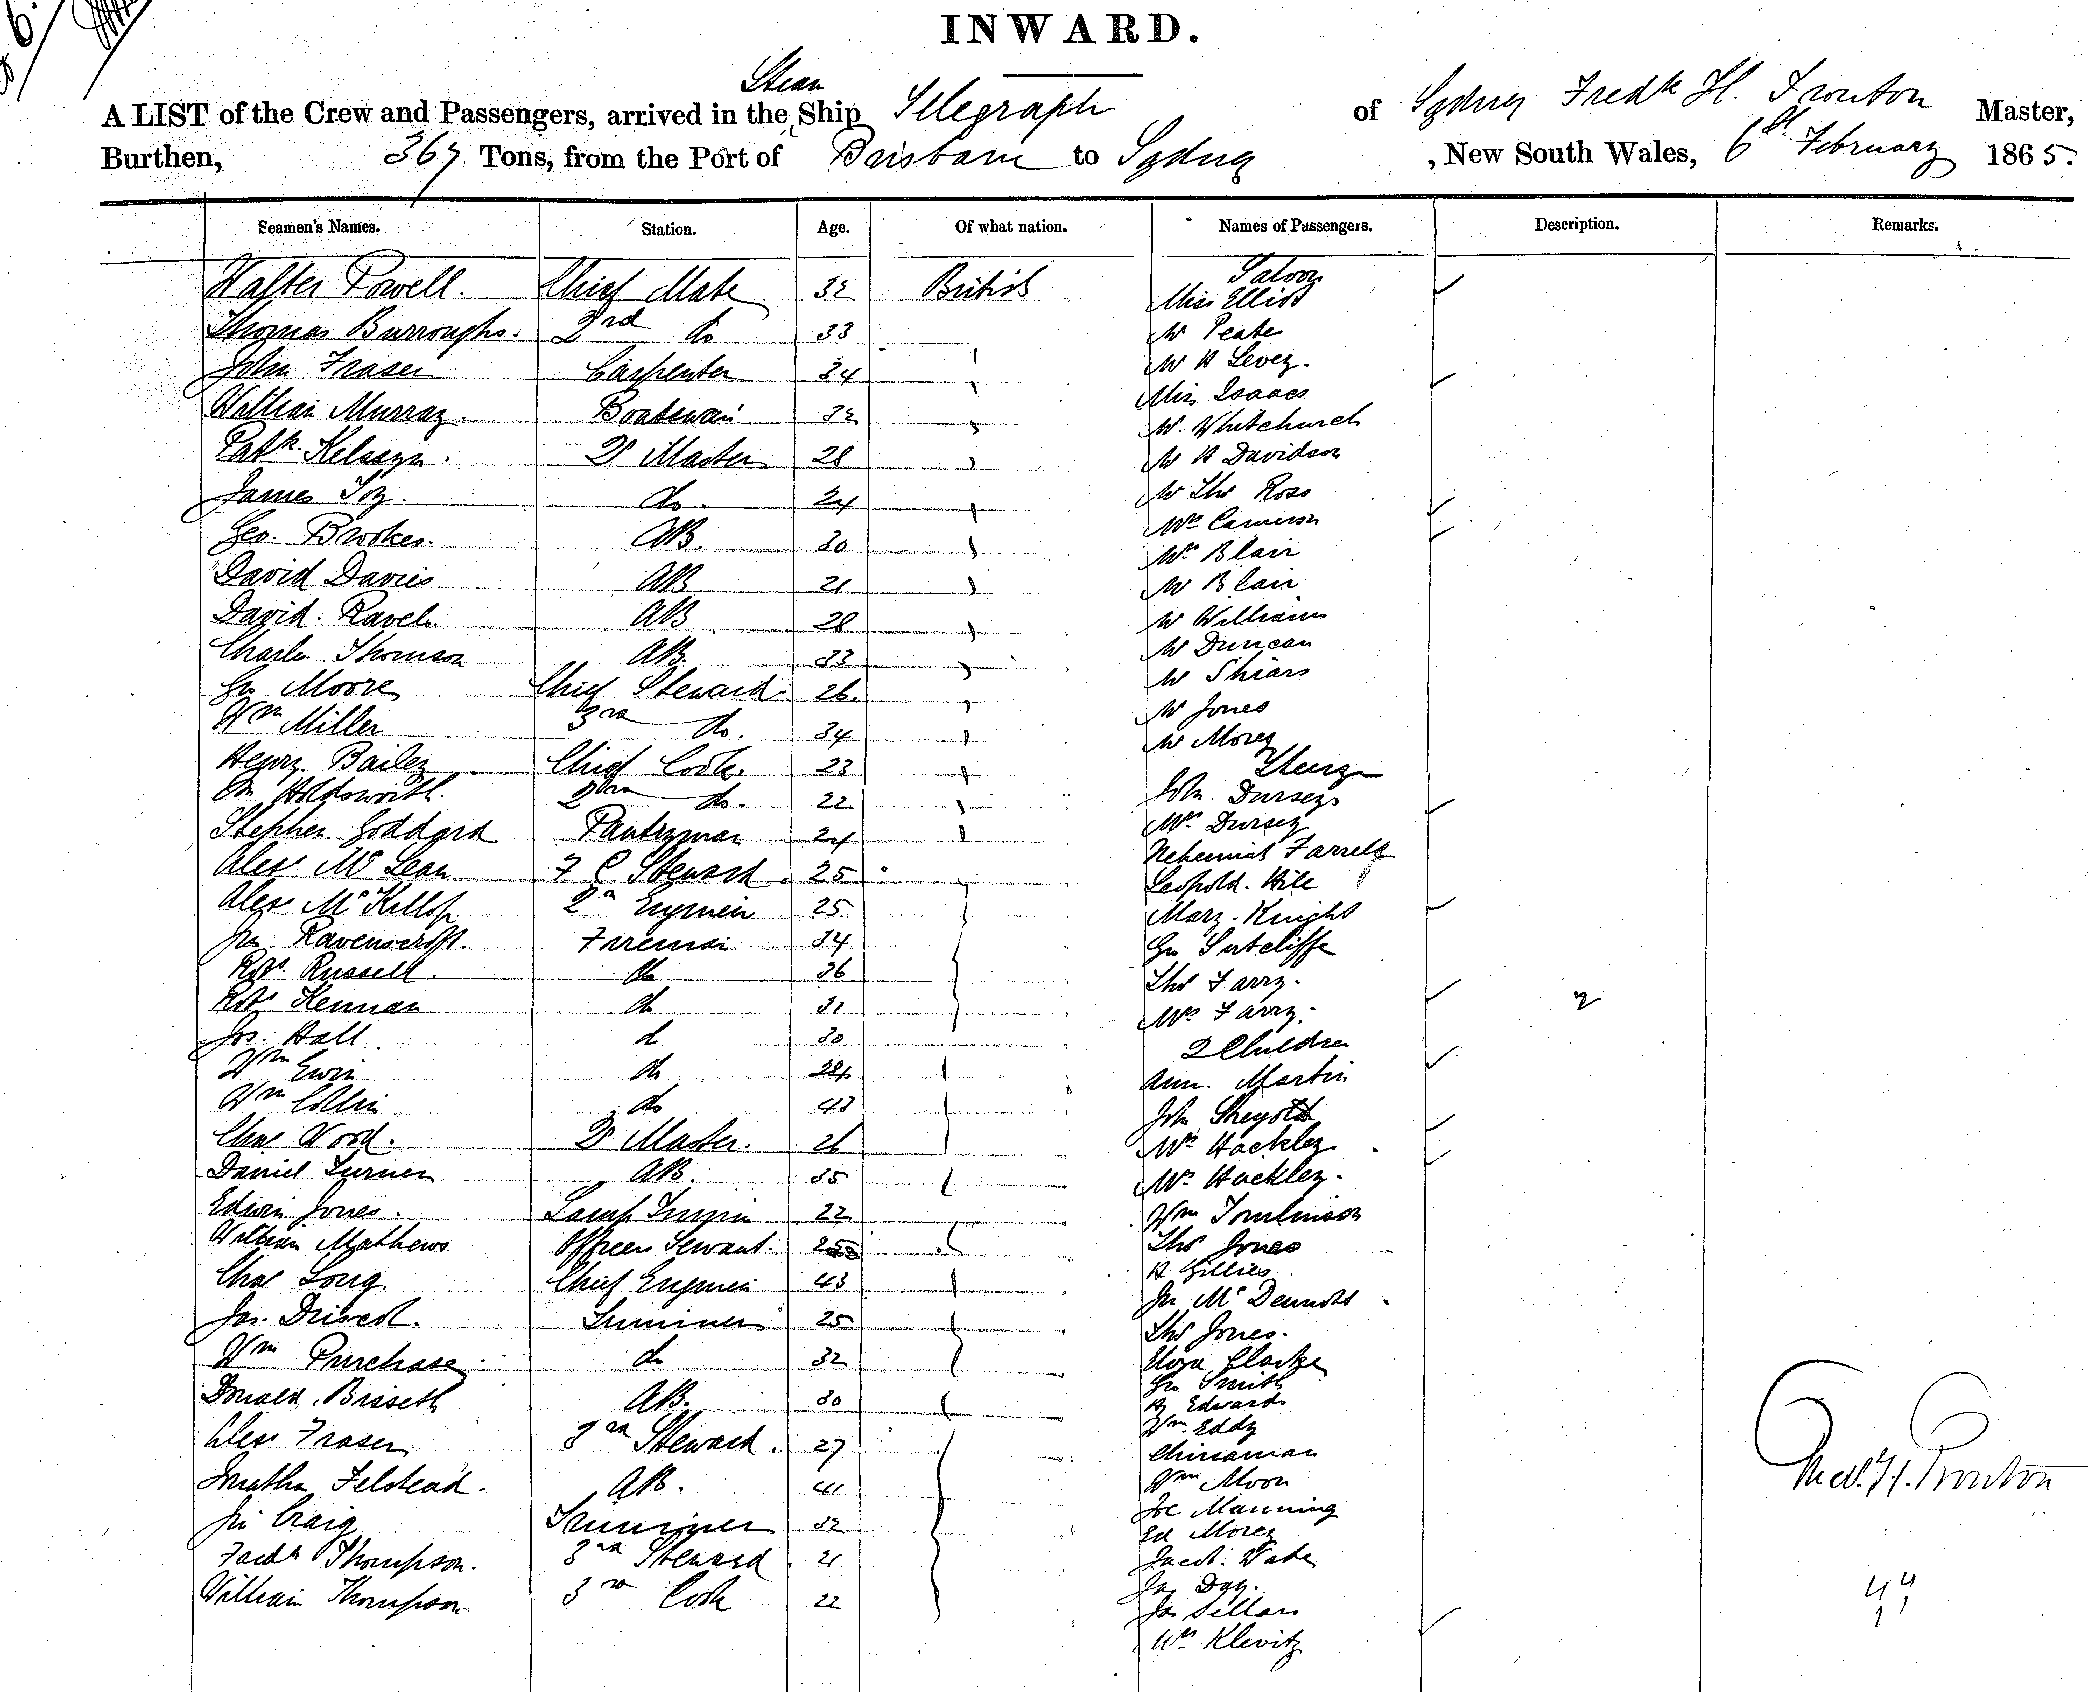 INWARD.
Steam
A LIST of the Crew and Passengers, arrived in the Ship Telegraph of Sydney Fredk H. Trouton Master,
Burthen, 367 Tons, from the Port of Brisbane to Sydney , New South Wales, 6th February 1865.
Seamen's Names. Station. Age. Of what nation. Names of Passengers. Description. Remarks.
Saloon
Walter Powell. Chief Mate 32 British Miss Elliot
Thomas Burroughs. 2nd do 33 Mr Peate
John Fraser Carpenter 34 Mr H Levey.
William Murray. Boatswain 32 Miss Isaacs
Patk 28 Mr Whitchurch
Qr Master Mr H Davidson
James Toy. do. 24 Mr Thos Ross
Geo. Brookes. AB. 30 Mrs Cameron
David Davies AB 21 Mrs Blair
David. Ravel AB 28 Mr Blair
Charles Thomson AB. 33 Mr Williams
Jn Moore Chief Steward 26. Mr Duncan
Wm Miller 3rd do. 34 Mr Shiars
Henry Bailey Chief Cook. 23 Mr Jones
Holdsworth 2nd do. 22 Mr Morey
Steerage
Stephen Goddard Pantryman 24 John Dursey
Alexr McLean F C Steward. 25 Mrs Dursey
Alexr McKillop 2nd Engineer 25 Nehemiah Farrell
Jn Ravenscroft. Fireman 34 Leopold. Hile
Robt Russell. do 36 Mary. Knight
Robt Kennan do 31 Jn Sutcliffe
Jos. Hall do 30 Thos Farry.
Wm Ewin do 24 Mrs Farry. 2
Wm Collin do 43 2 Children
Chas Wood. Qr Master. 26 Ann. Martin
Daniel Turner AB. 35 John
Edwin Jones. Lamp Trimmer 22 Mrs Hackley
William Mathews Officers Servant. 25 Mr Hackley.
Chas Long Chief Engineer 43 Wm Tomlinson
Jas. Trimmer 25 Thos Jones
Wm Purchase do 32 H Gillies
Donald AB. 30 Jn McDermott
Alexr Fraser 3rd Steward. 27 Thos Jones.
Jonathan Felstead. AB. 41 Eliza Clarke
Jn Craig Trimmer 32 Jn Smith
Fredk Thompson. 3rd Steward 21 Hy Edwards
William Thompson 3rd Cook 22 Wm. Eddy
Chinaman
Wm Moon
Joe Manning
Ed Morey
Jacob. Wate
Jas Day.
Jas Sellars
Mrs Klevitz
Fredk. H. Trouton